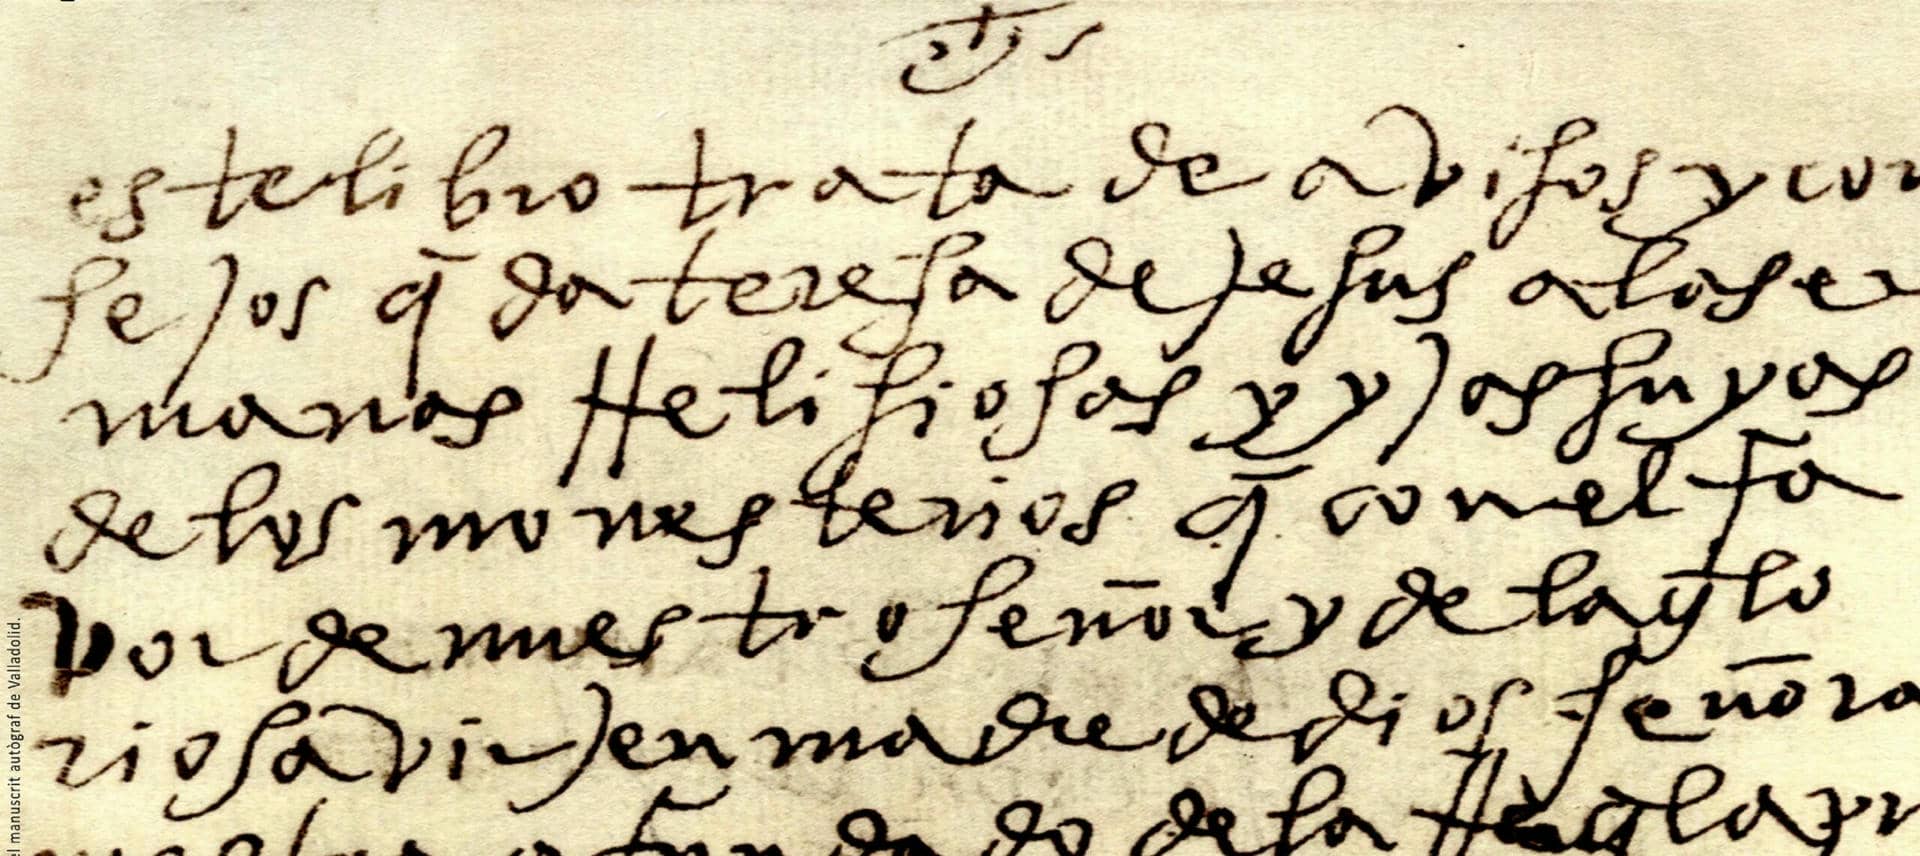 jhs
este libro trata de avisos y con
sejos q̄ da teresa de jesus a las er
manas Relisiosas y yjas suyas
de los monesterios q̄ con el fa
vor de nuestro señor y de la glo
riosa virjen madre de dios señora
a fundado de la Regla pr
el manuscrit autògraf de Valladolid.